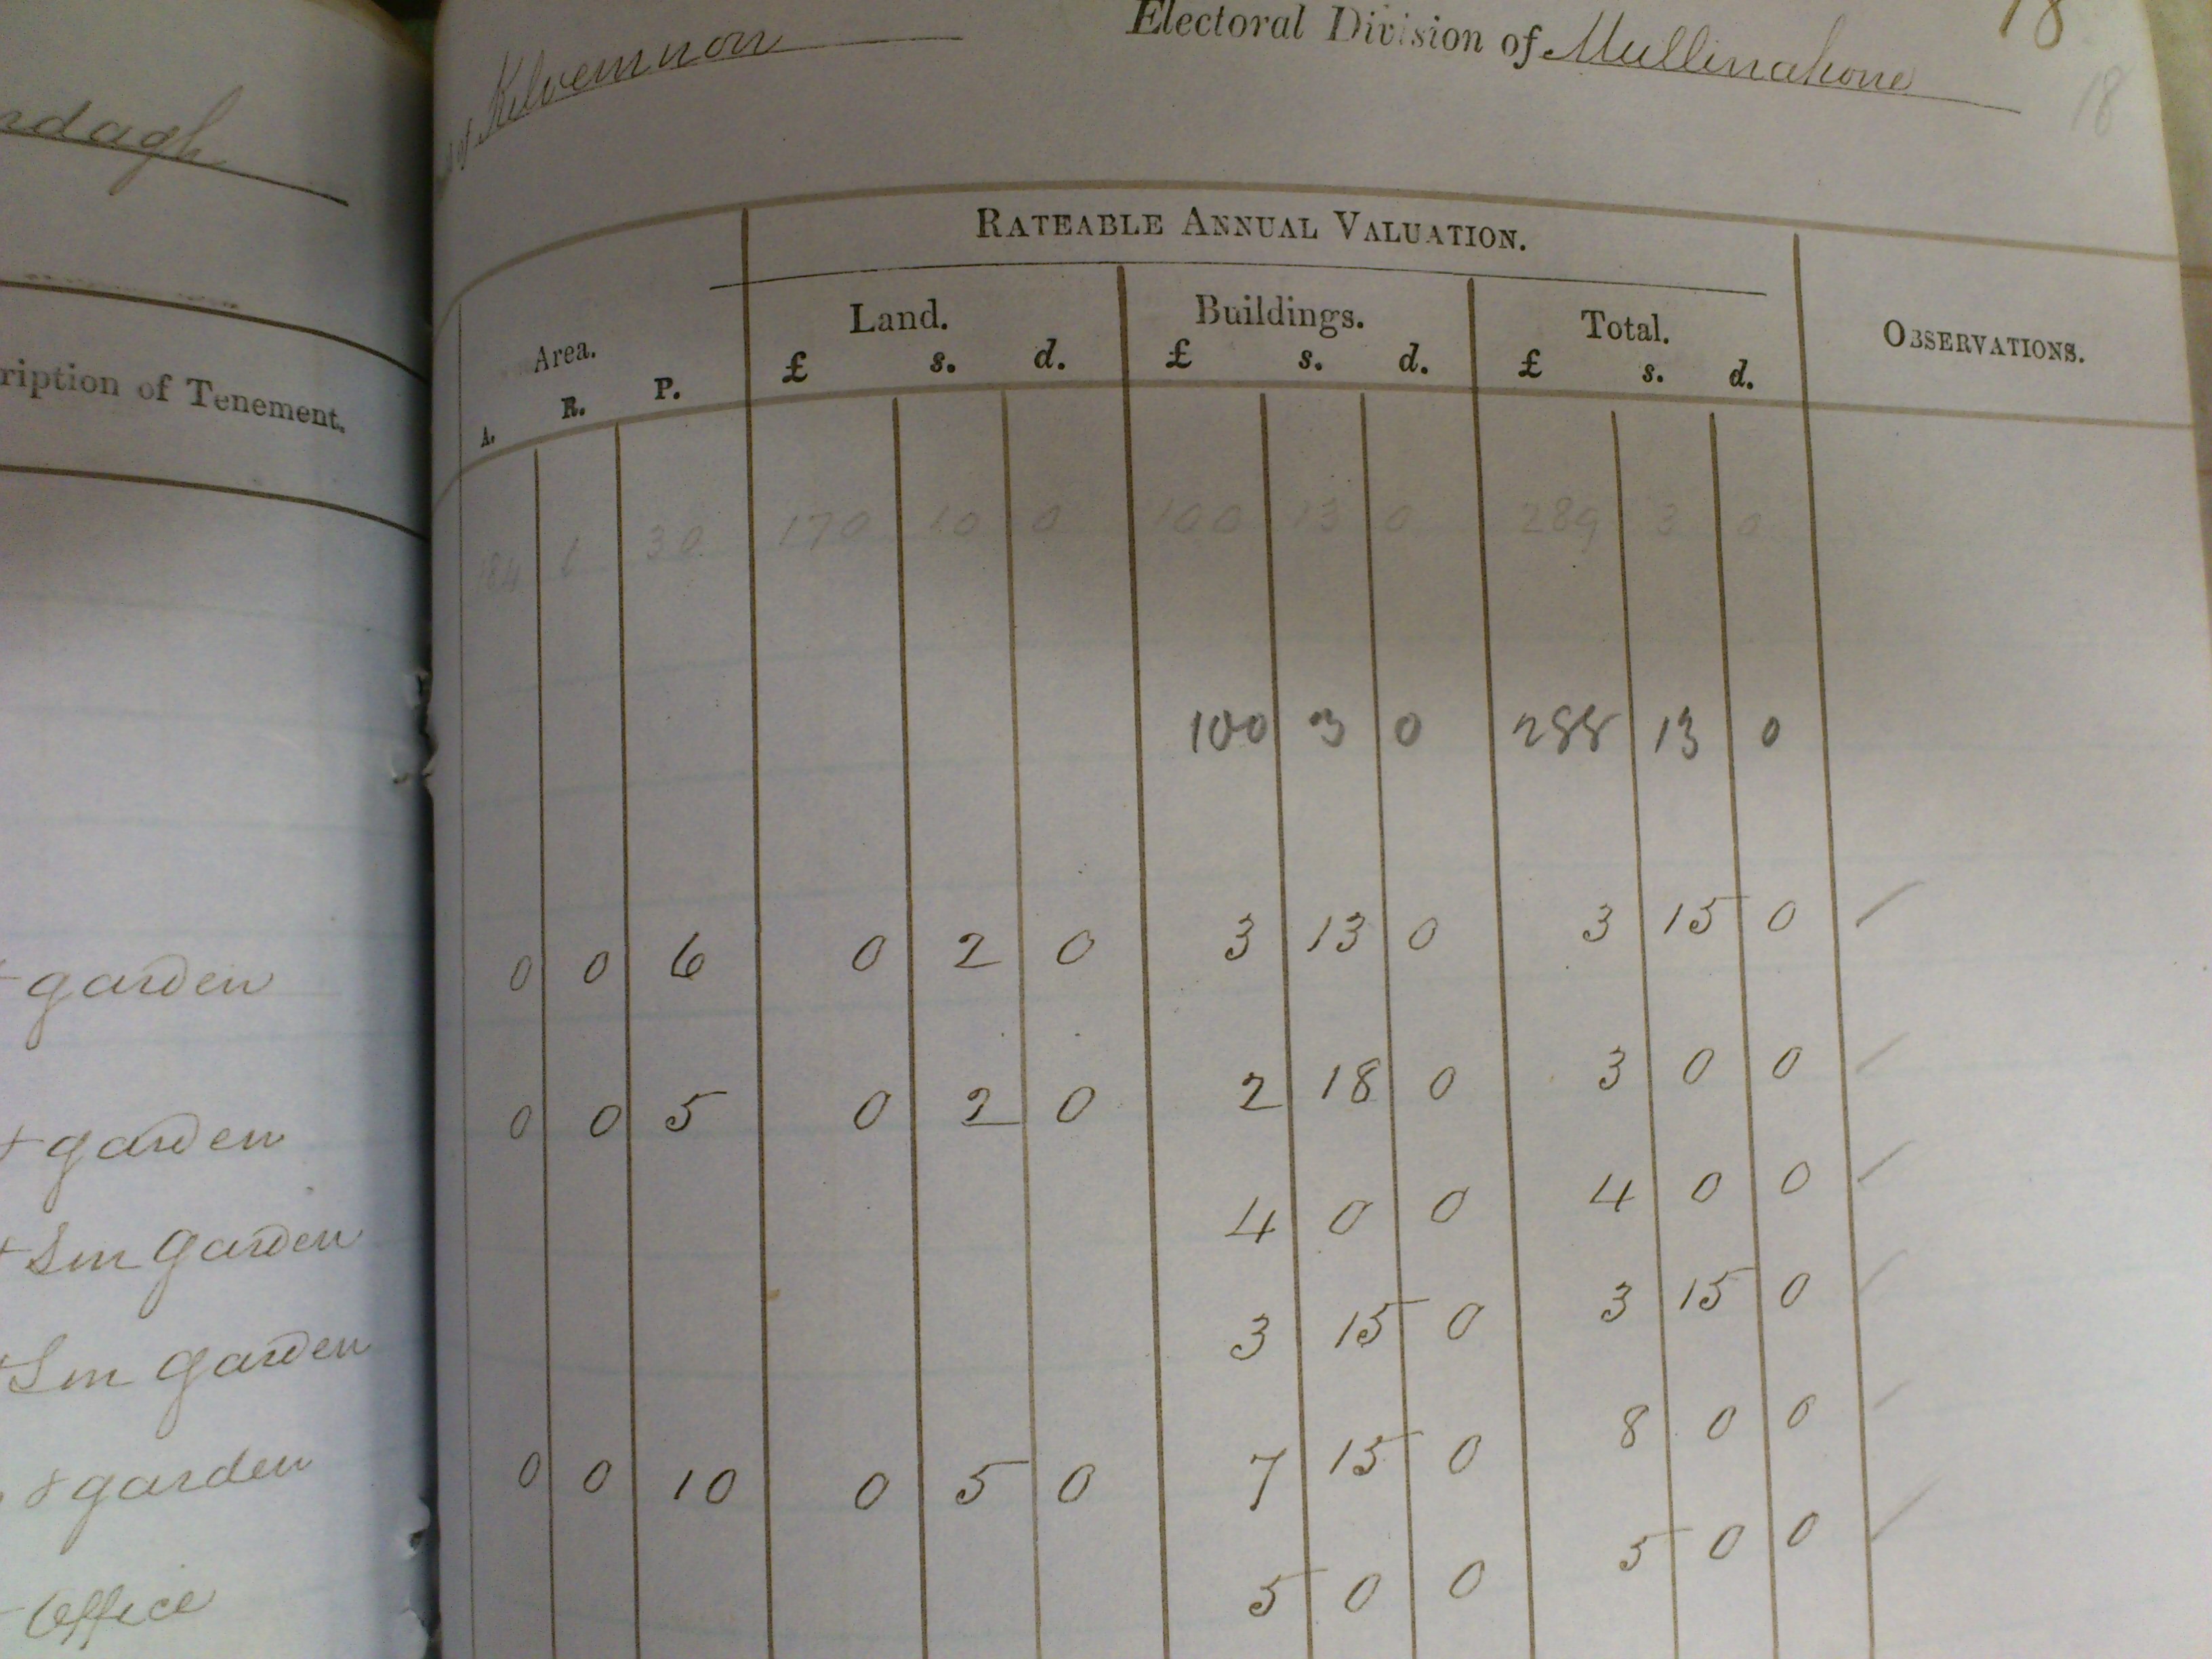 ndagh
ription of Tenement.
garden
garden
Sm Garden
Sm Garden
garden
Office
Kilvemnon
Electoral Division of Mullinahone
18
18
RATEABLE ANNUAL VALUATION.
Area. Land. Buildings. Total. OBSERVATIONS.
A. R. P. £ s. d. £ s. d. £ s. d.
184 1 30 170 10 0 100 13 0 289 3 0
100 3 0 288 13 0
0 0 6 0 2 0 3 13 0 3 15 0
0 0 5 0 2 0 2 18 0 3 0 0
4 0 0 4 0 0
3 15 0 3 15 0
0 0 10 0 5 0 7 15 0 8 0 0
5 0 0 5 0 0